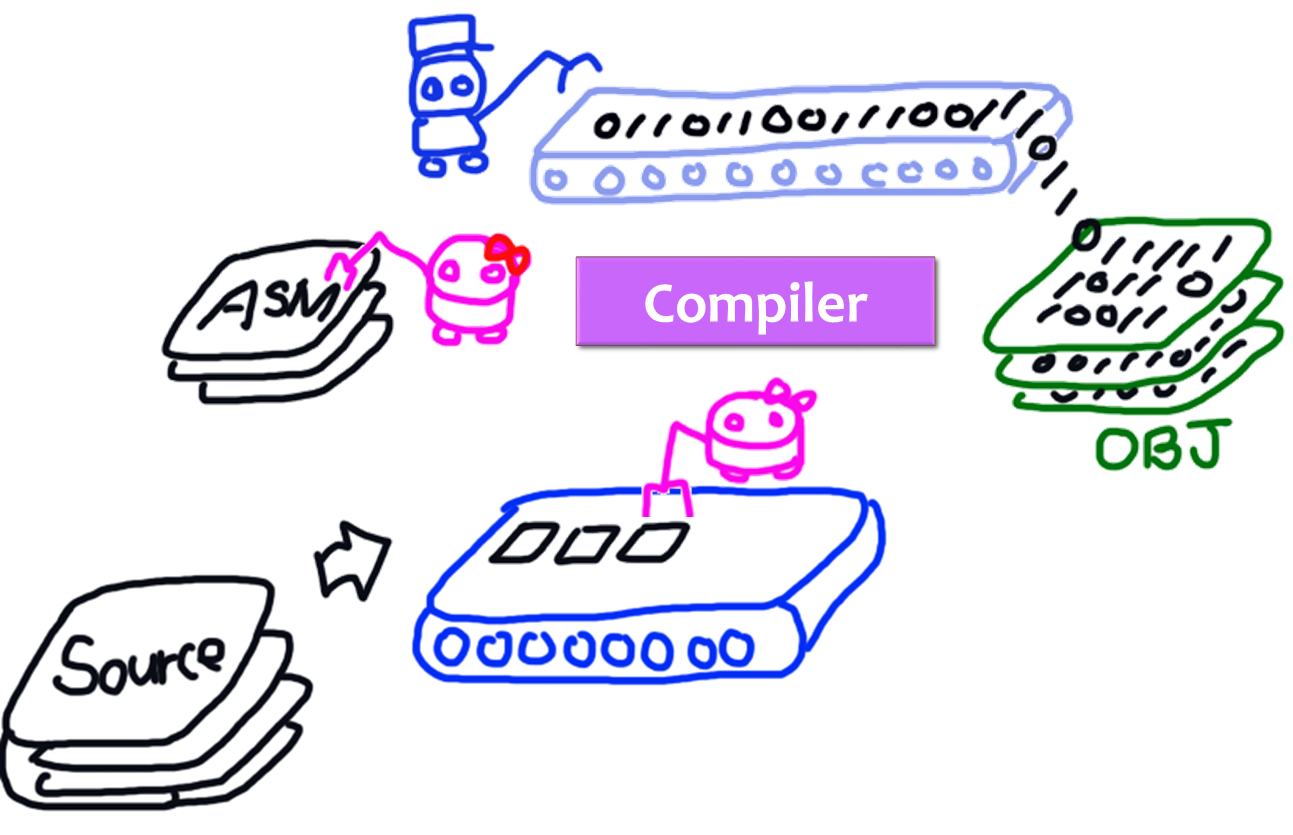 0110110011100111011
ASM
Compiler
011111
101101
10011
OBJ
Source